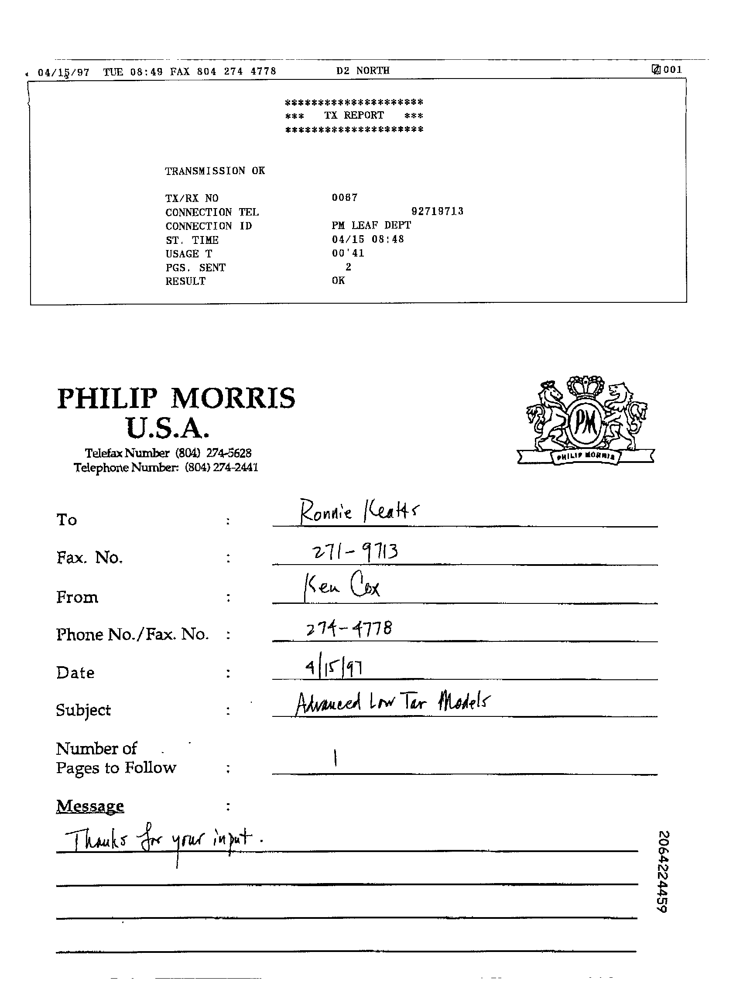 04/15/97 TUE 08:49 FAX 804 274 4778 D2 NORTH 001
*********************
*** TX REPORT ***
*********************
TRANSMISSION OK
TX/RX NO 0067
CONNECTION TEL 92719713
CONNECTION ID PM LEAF DEPT
ST. TIME 04/15 08:48
USAGE T 00'41
PGS. SENT 2
RESULT OK
PHILIP MORRIS
U.S.A.
Telefax Number (804) 274-5628
Telephone Number: (804) 274-2441
PM
PHILIP MORRIS
To : Ronnie Keatts
Fax. No. : 271-9713
From : Ken Cox
Phone No./Fax. No. : 274-4778
Date : 4/15/97
Subject : Advanced Low Tar Models
Number of
Pages to Follow : 1
Message :
Thanks for your input.
2064224459